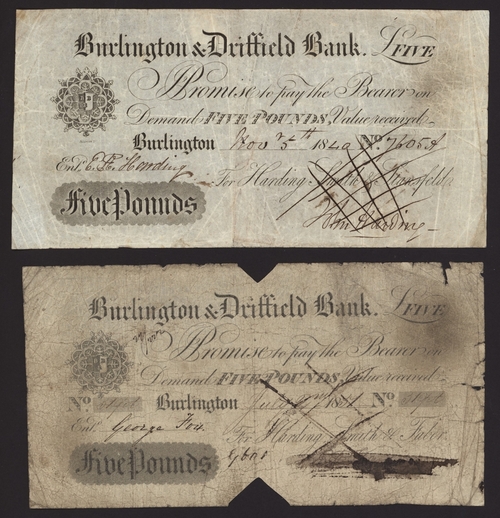 Burlington & Driffield Bank. £FIVE
I Promise to pay the Bearer on
Demand FIVE POUNDS, Value received
Burlington Nov 1840 No.
Entd. Harding For Harding Smith &
Five Pounds John Harding
Burlington & Driffield Bank. £FIVE
I Promise to pay the Bearer on
Demand FIVE POUNDS, Value received
No. Burlington No.
Entd. George Fox For Harding Smith & Faber
Five Pounds